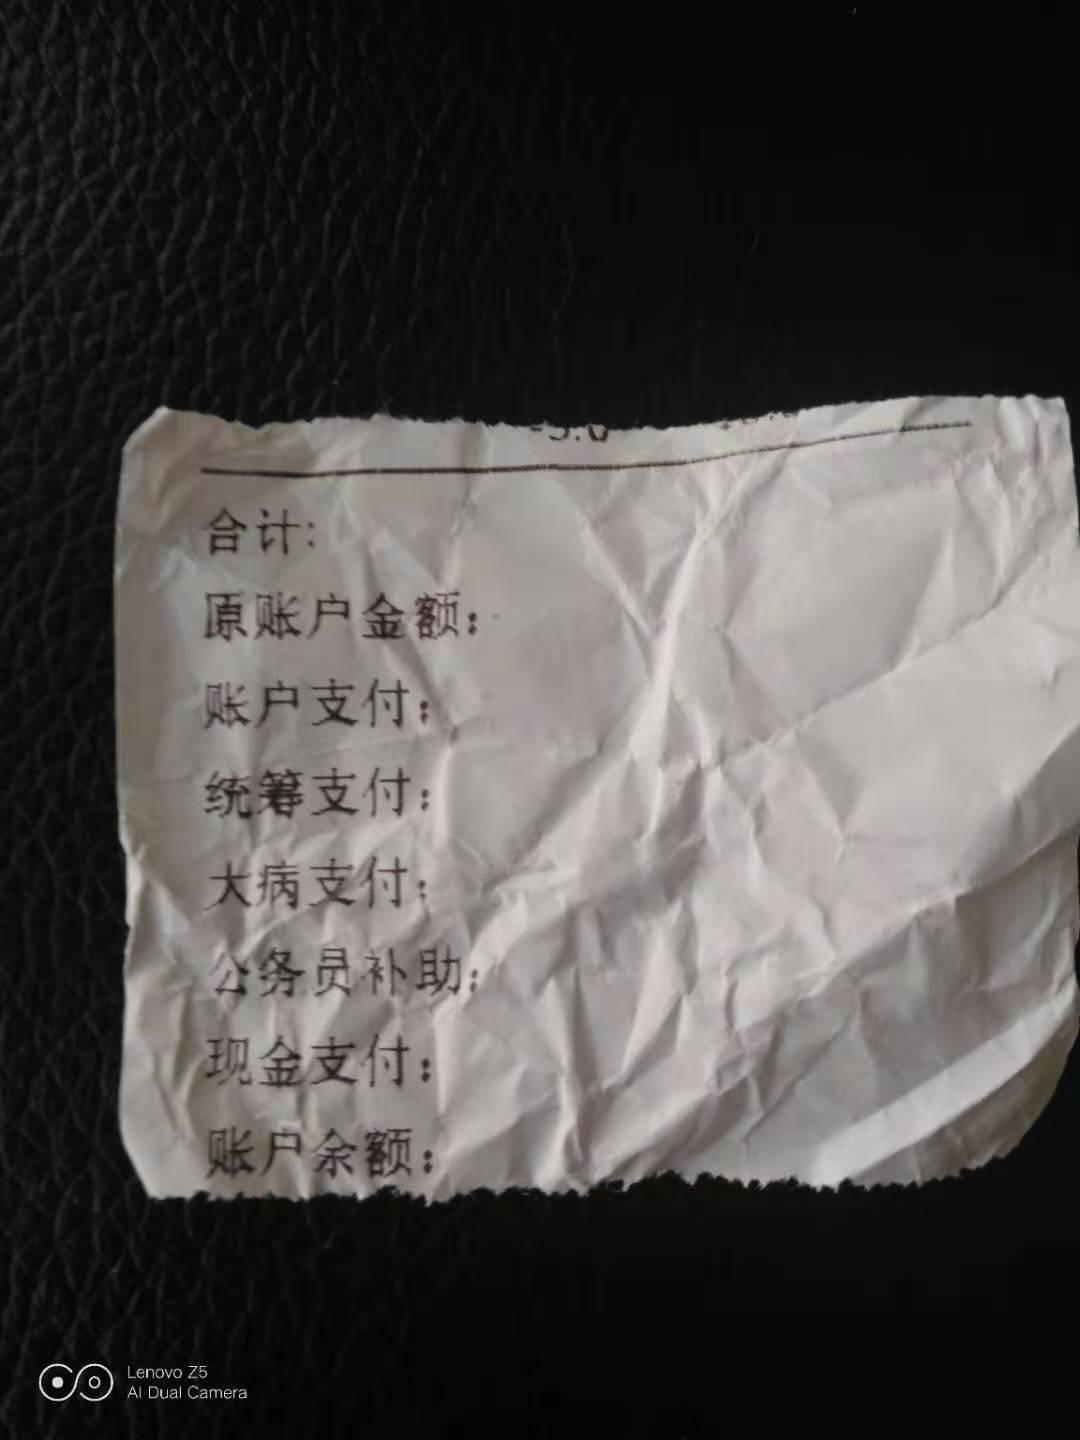 合计:
原账户金额:
账户支付:
统筹支付:
大病支付:
公务员补助:
现金支付:
账户余额:
Lenovo Z5
AI Dual Camera